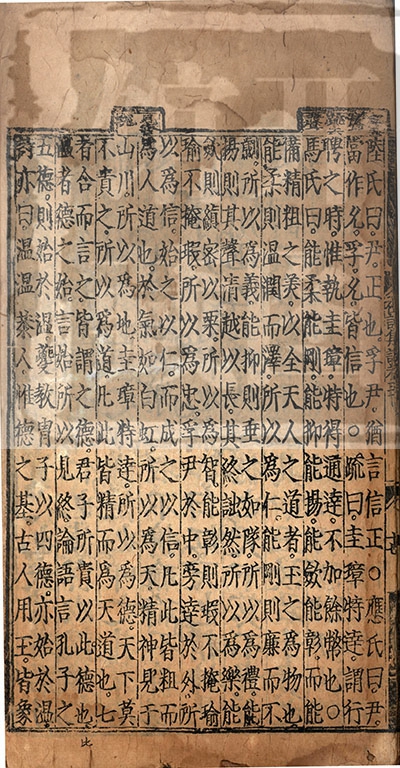 陸氏曰尹正也孚尹猶言信正○應氏曰尹
當作允孚允皆信也○疏曰圭璋特達謂行
聘之時惟執圭璋特得通達不加餘幣也○
馬氏曰能柔能剛能抑能揚能斂能彰而能
備精粗之美以全天人之道者玉之為物也
能柔則溫潤而澤所以為仁能剛則廉而不
劌所以為義能抑則垂之如隊所以為禮能
揚則其聲清越以長其終詘然所以為樂能
斂則縝密以栗所以為智能彰則瑕不掩瑜
瑜不掩瑕所以為忠孚尹於中旁達於外所
以為信始之以仁而成之以信凡此皆粗而
為人道也於氣如白虹所以為天精神見于
山川所以為地圭璋特達所以為德天下莫
不貴之所以為道凡此皆精而為天道也七
者合而言之皆謂之德君子所貴以此德也
溫者德之始言始所以見終論語言孔子之
五德則始於溫夔教胄子以四德亦始於溫
詩亦曰溫溫恭人惟德之基古人用玉皆象